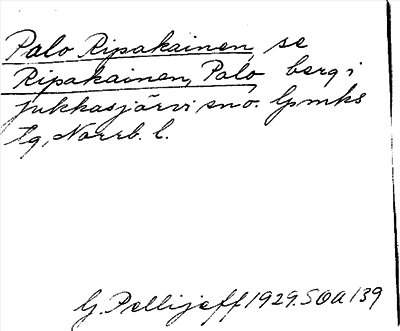 Palo Ripakainen, se
Ripakainen, Palo, berg i
Jukkasjärvi sno. Lpmks
tg, Norrb. l.
G. Pellijeff 1929. SOA 139